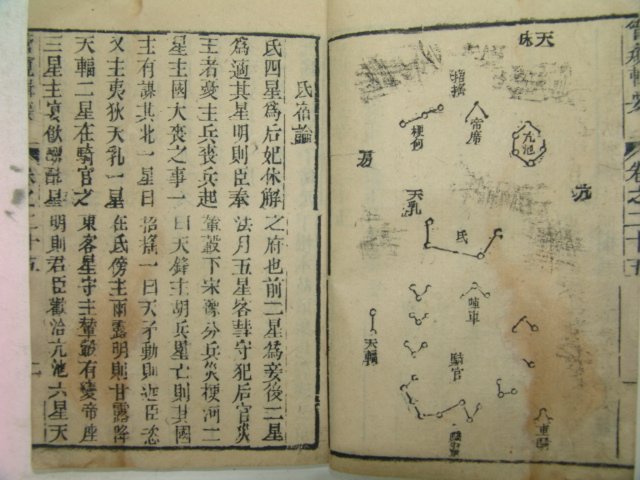 卷之二十五
亢池
帝席
招搖
梗河
天乳
氐
車
騎官
車騎
天輻
氐宿論
氐四星爲后妃休解之府也前二星爲妾後二星
爲適其星明則臣奉法月五星客彗守犯后宮災
主者憂主兵喪兵起輦轂下宋豫分兵災梗河三
星主國大喪之事一曰天鋒主胡兵星亡則其國
主有謀其北一星曰招搖一曰天矛動則近臣恣
又主夷狄天乳一星在氐傍主雨露明則甘露降
天輻二星在騎官之東客星守主輦轂有變帝座
三星主宴飲酬酢星明則君臣歡洽亢池六星天